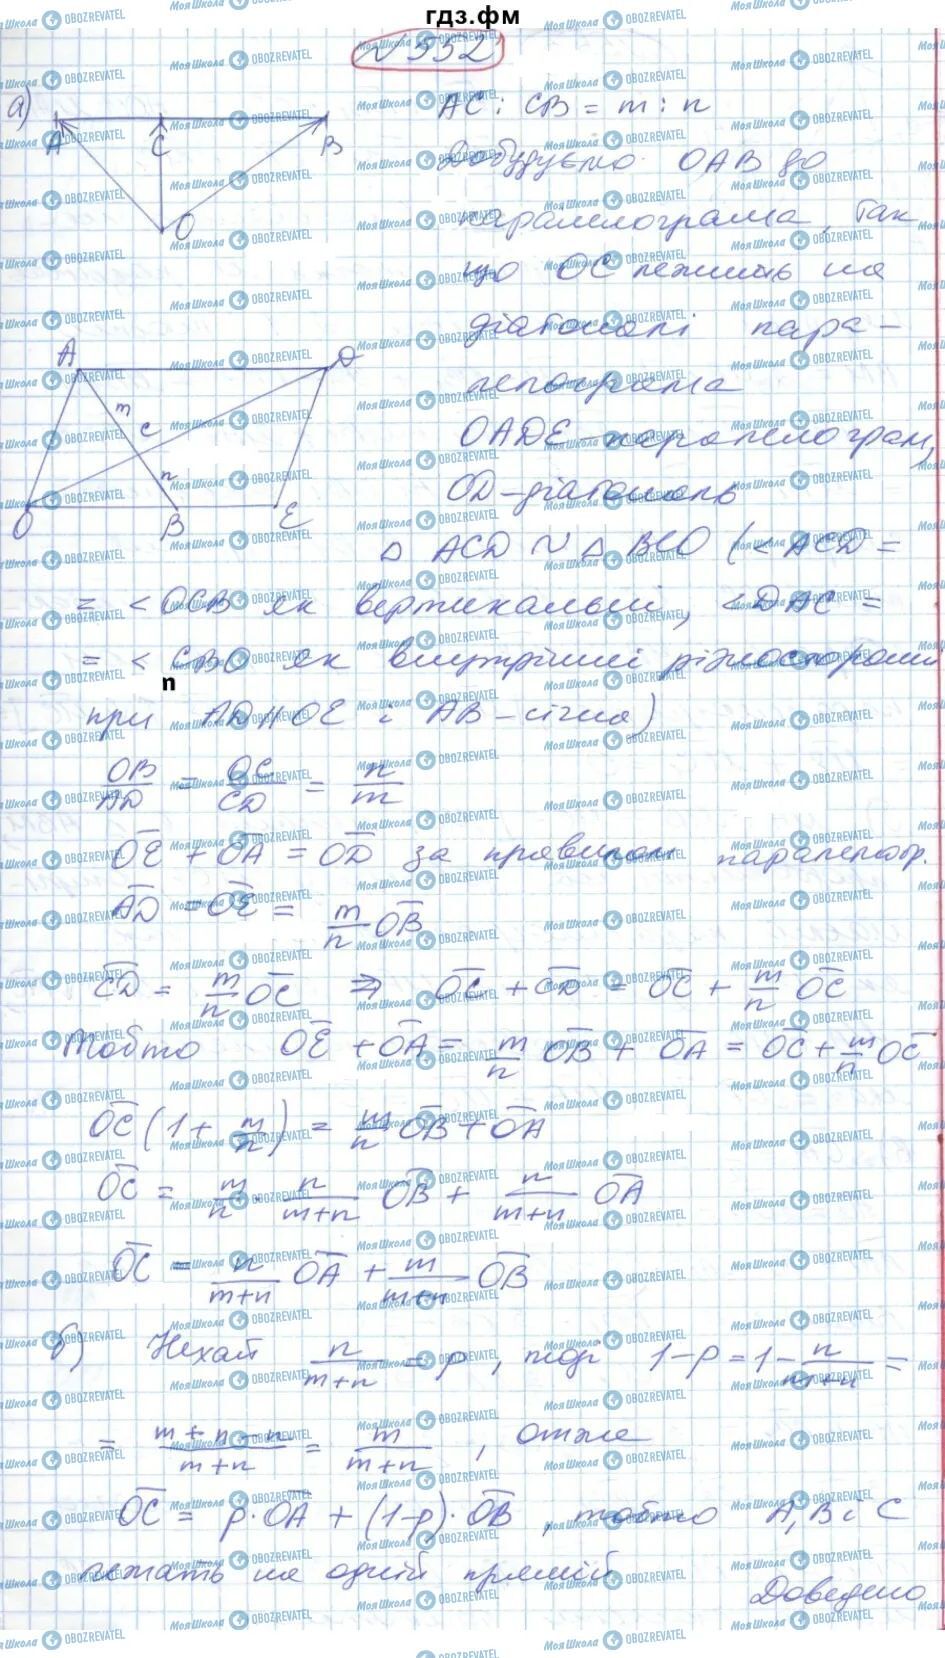 гдз.фм
№ 552
а)
AC : CB = m : n
A C B
Добудуємо OAB до
паралелограма, так
O
що OC лежить на
діагоналі пара-
A D
лелограма
m
C
OADE - паралелограм,
n
OD - діагональ
O B E
△ ACD ∾ △ BCO (< ACD =
= < OCB як вертикальні, < DAC =
= < CBO як внутрішні різносторонні
n
при AD || OE і AB - січна)
OB/AD = OC/CD = n/m
OE + OA = OD за правилом паралелогр.
AD = OE = m/n OB
CD = m/n OC ⇒ OC + CD = OC + m/n OC
тобто OE + OA = m/n OB + OA = OC + m/n OC
OC (1 + m/n) = m/n OB + OA
OC = m/n · n/m+n OB + n/m+n OA
OC = n/m+n OA + m/m+n OB
б) Нехай n/m+n = p, тоді 1-p = 1 - n/m+n =
= m+n-n/m+n = m/m+n, отже
OC = p·OA + (1-p)·OB, тобто A, B і C
лежать на одній прямій
Доведено
МояШкола OBOZREVATEL